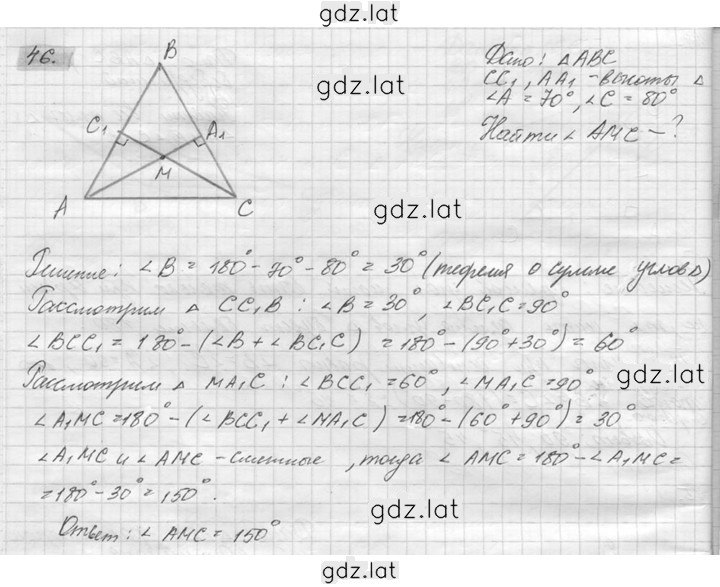 gdz.lat
46.
B
C₁
A₁
M
A
C
gdz.lat
Дано: △ABC
CC₁, AA₁ - высоты △
∠A = 70°, ∠C = 80°
Найти ∠ AMC - ?
gdz.lat
Решение: ∠B = 180° - 70° - 80° = 30° (теорема о сумме углов △)
Рассмотрим △ CC₁B : ∠B = 30°, ∠BC₁C = 90°
∠BCC₁ = 180° - (∠B + ∠BC₁C) = 180° - (90° + 30°) = 60°
gdz.lat
Рассмотрим △ MA₁C : ∠BCC₁ = 60°, ∠MA₁C = 90°
∠A₁MC = 180° - (∠BCC₁ + ∠MA₁C) = 180° - (60° + 90°) = 30°
∠A₁MC и ∠AMC - смежные, тогда ∠ AMC = 180° - ∠A₁MC =
= 180° - 30° = 150°.
gdz.lat
Ответ: ∠ AMC = 150°
gdz.lat